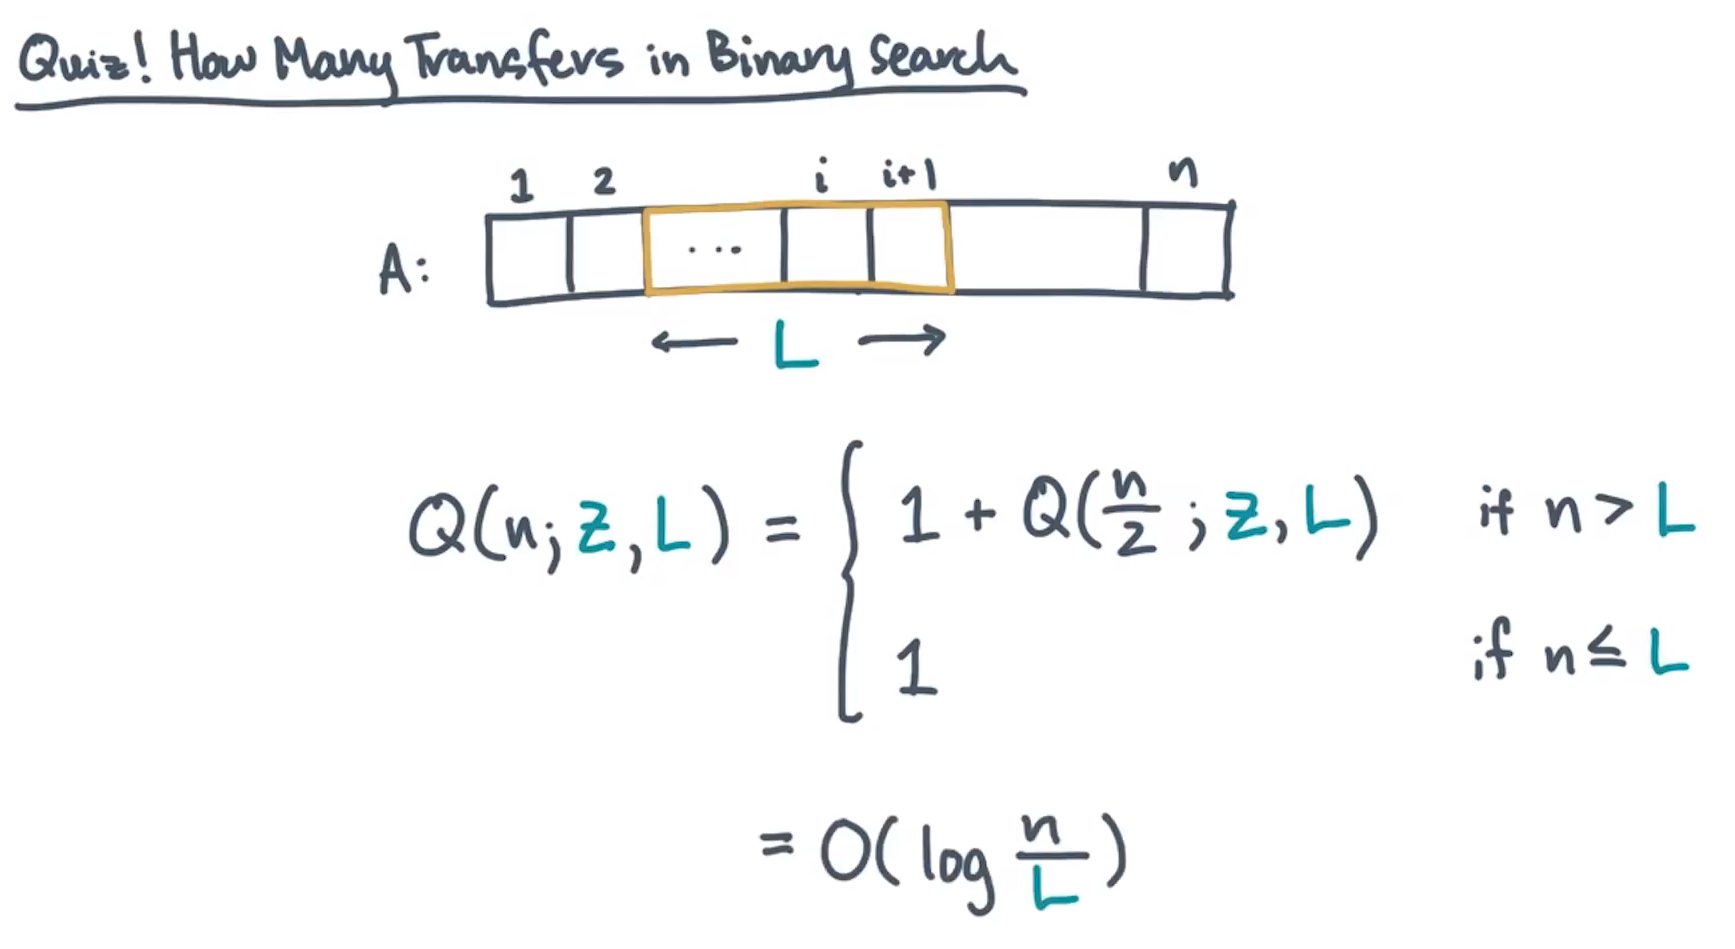 Quiz! How Many Transfers in Binary Search
1 2 i i+1 n
A: ...
← L →
Q(n; Z, L) = { 1 + Q(n/2; Z, L) if n > L
1 if n ≤ L
= O(log n/L)